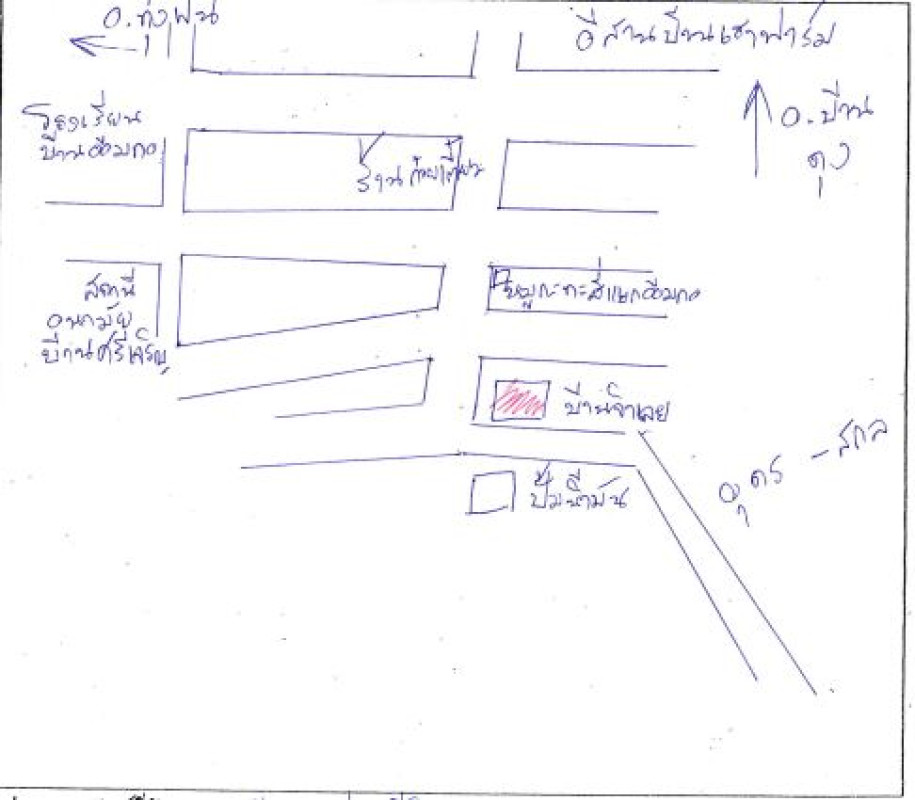 อ.ทุ่งฝน
อีสานบ้านเฮาฟาร์ม
โรงเรียน
บ้านอ้อมกอ
อ.บ้าน
ดุง
ร้านก๋วยเตี๋ยว
สถานี
อนามัย
บ้านศรีเจริญ
หมูกะทะสี่แยกอ้อมกอ
บ้านจำเลย
อุดร - สกล
ปั๊มน้ำมัน